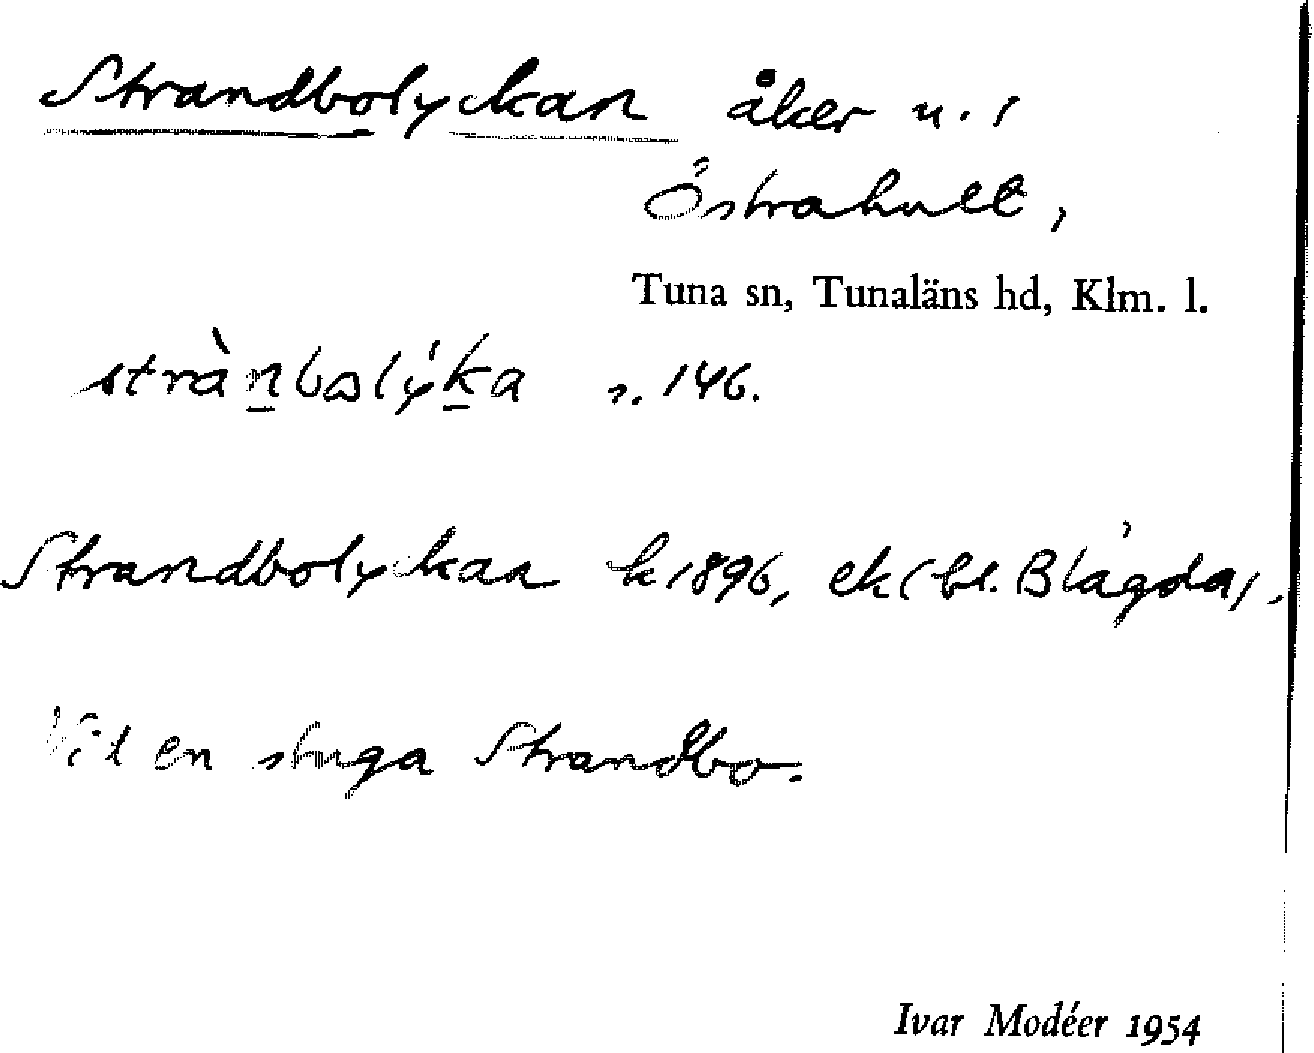 Strandbolyckan åker u. /
Östrahult,
Tuna sn, Tunaläns hd, Klm. l.
strànbolýka s. 146.
Strandbolyckan k 1896, ek (bl. Blågda).
Vid en stuga Strandbo.
Ivar Modéer 1954